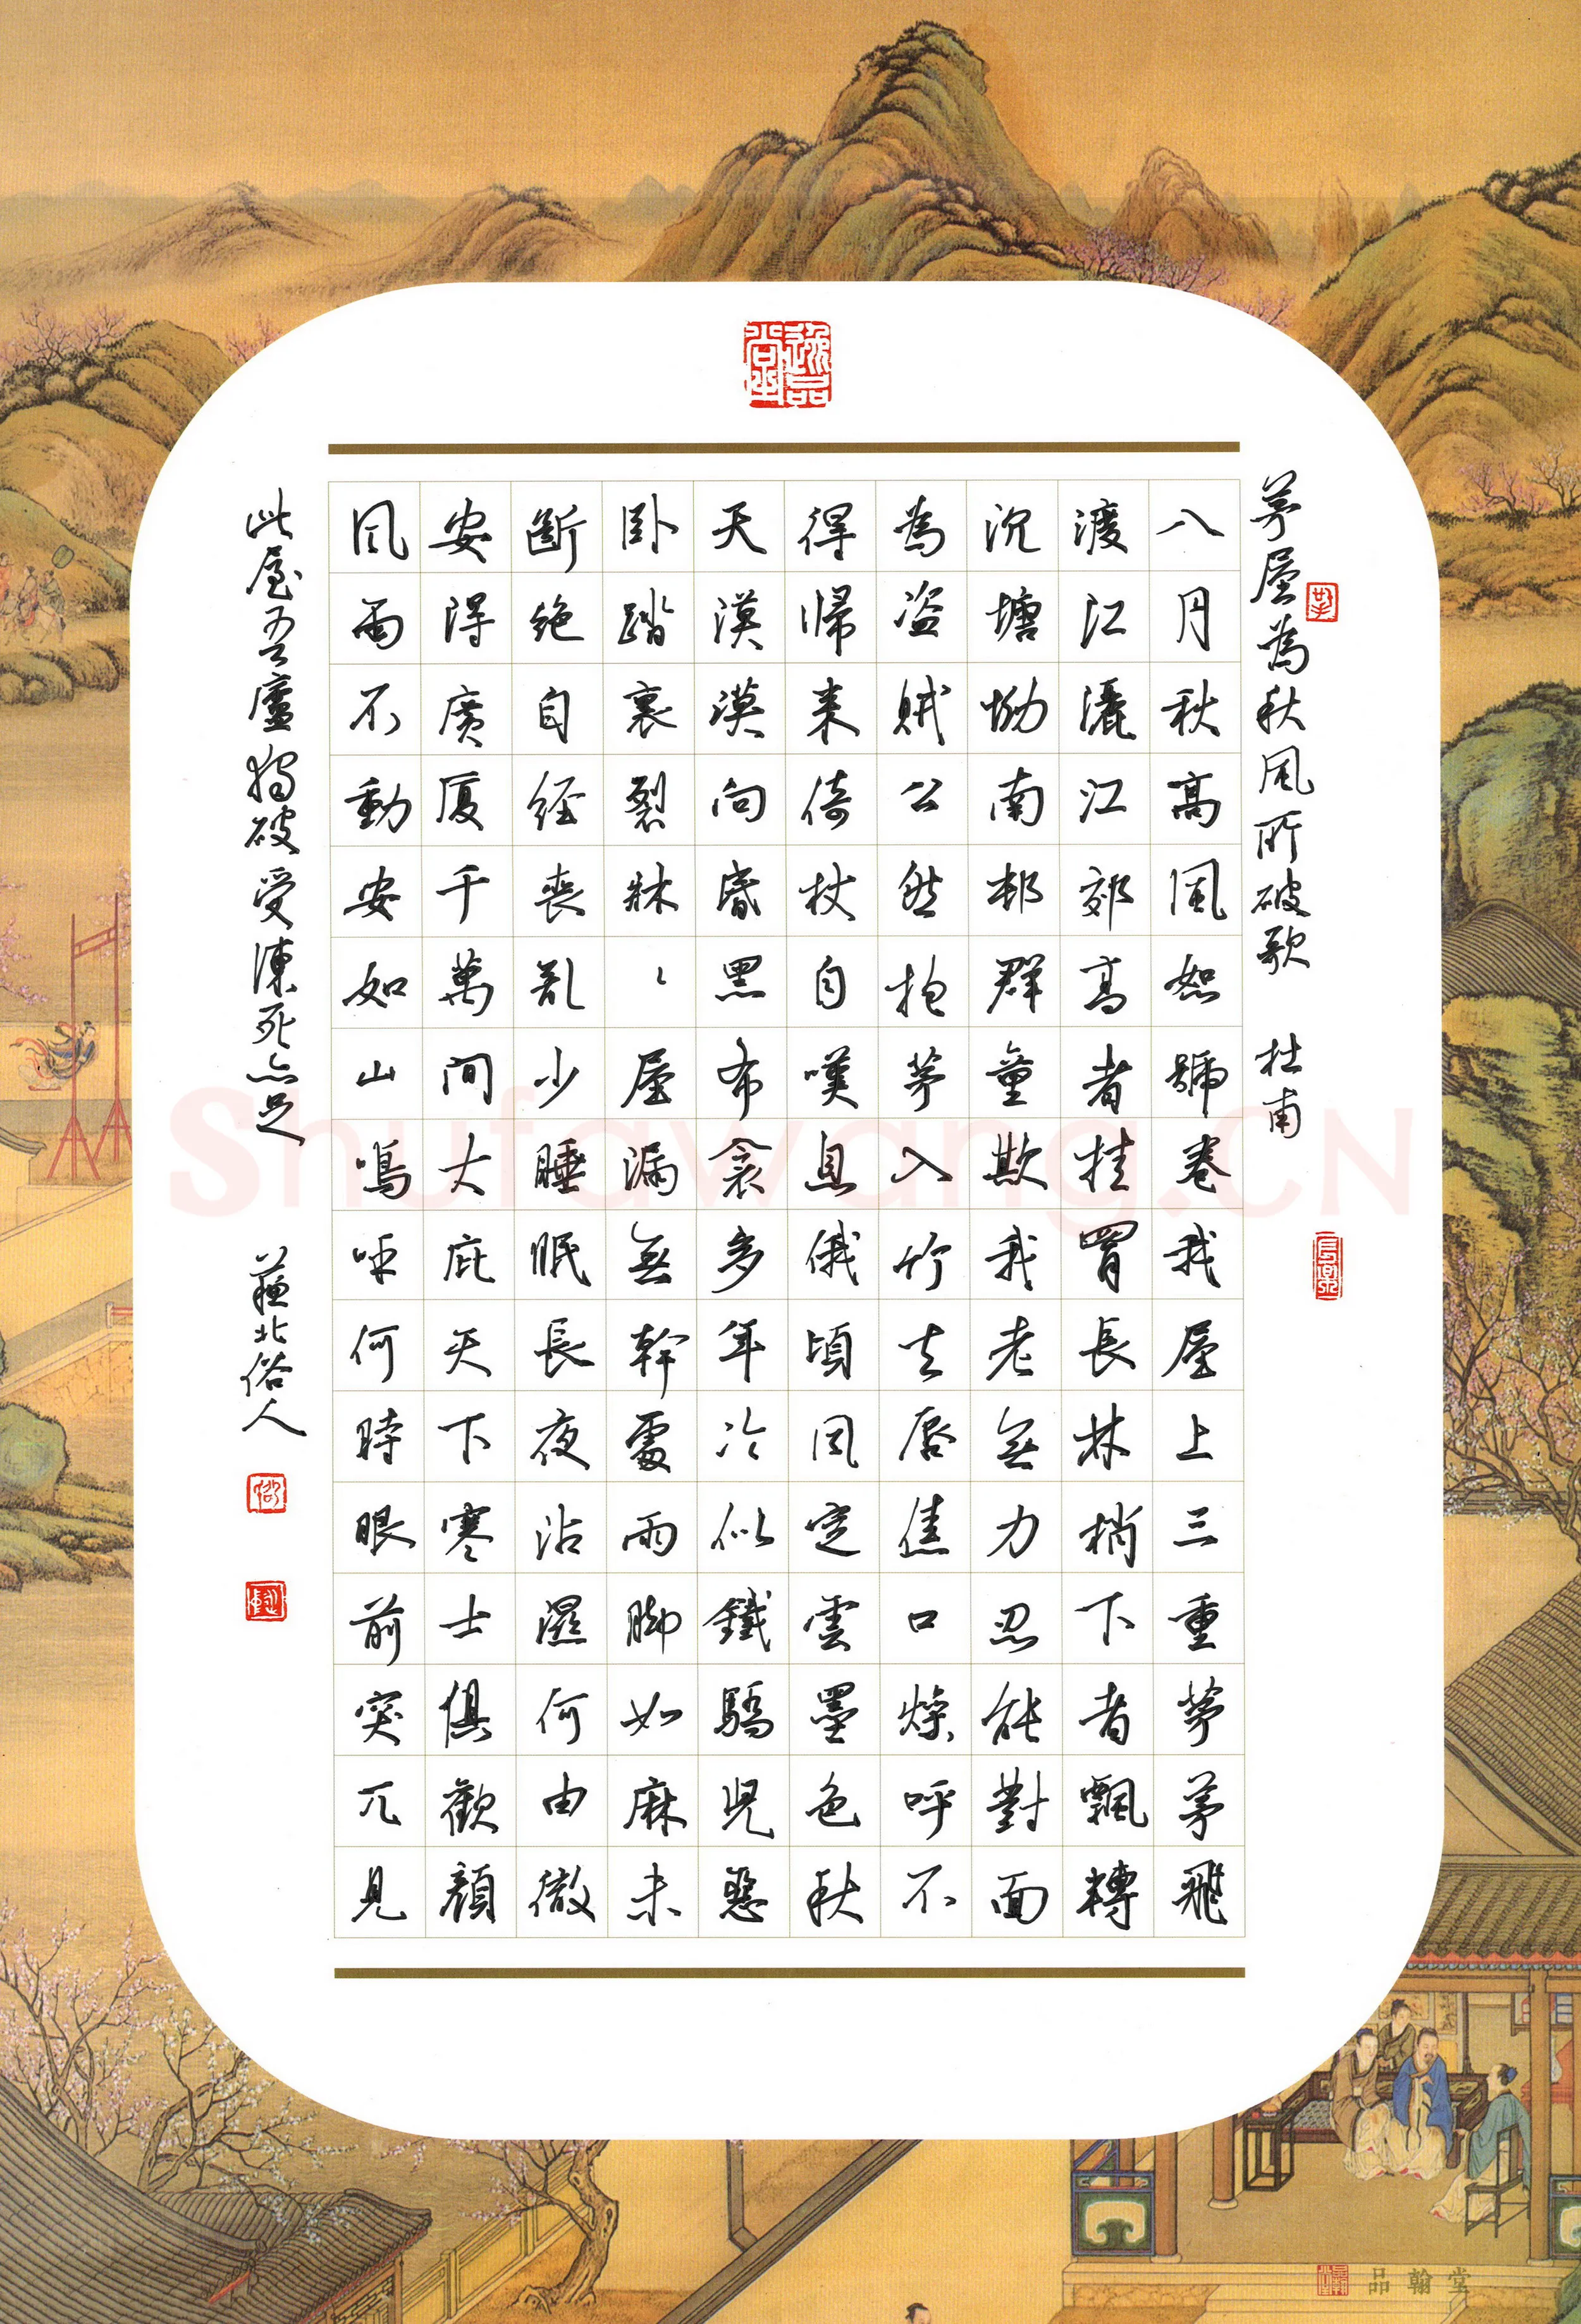 逸品堂
茅屋為秋風所破歌 杜甫
八月秋高風怒號卷我屋上三重茅茅飛
渡江灑江郊高者挂罥長林梢下者飄轉
沉塘坳南邨群童欺我老無力忍能對面
為盜賊公然抱茅入竹去唇焦口燥呼不
得歸來倚杖自嘆息俄頃風定雲墨色秋
天漠漠向昏黑布衾多年冷似鐵驕兒惡
卧踏裏裂牀〻屋漏無幹處雨脚如麻未
斷絕自經喪亂少睡眠長夜沾濕何由徹
安得廣廈千萬間大庇天下寒士俱歡顏
風雨不動安如山嗚呼何時眼前突兀見
此屋吾廬獨破受凍死亦足 蘇北俗人
Shufawang.CN
品翰堂